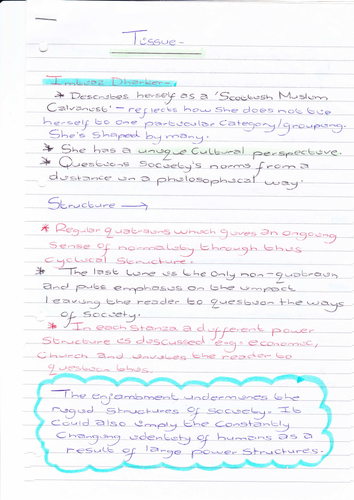 Tissue-
Imtiaz Dharker-
* Describes herself as a 'Scottish Muslim
Calvanist' - reflects how she does not tie
herself to one particular category/grouping.
She's shaped by many.
* She has a unique cultural perspective.
* Questions society's norms from a
distance in a philosophical way.
Structure →
* Regular quatrains which gives an ongoing
sense of normality through this
cyclical structure.
* The last line is the only non-quatrain
and puts emphasis on the impact
leaving the reader to question the ways
of society.
* In each stanza a different power
structure is discussed e.g. economic,
Church and invites the reader to
question this.
The enjambment undermines the
rigid structures of society. It
could also imply the constantly
changing identity of humans as a
result of large power structures.